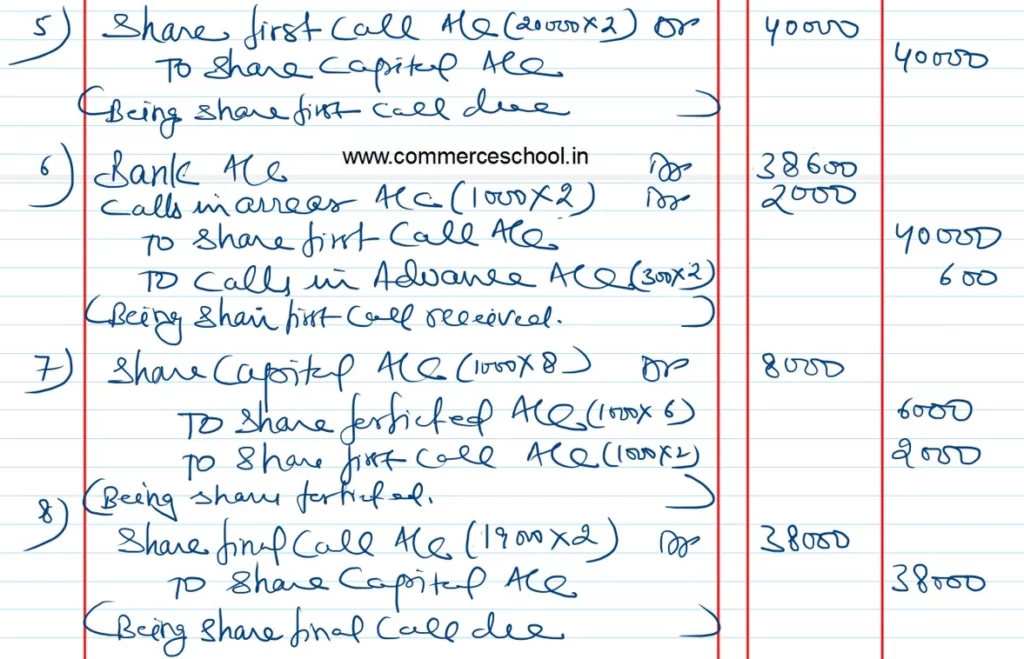 5) Share first Call A/c (20000×2) Dr 40000
To Share Capital A/c 40000
(Being share first call due)
www.commerceschool.in
6) Bank A/c Dr 38600
Calls in arrear A/c (1000×2) Dr 2000
To Share first Call A/c 40000
To Calls in Advance A/c (300×2) 600
(Being Share first Call received.)
7) Share Capital A/c (1000×8) Dr 8000
To Share forfeited A/c (1000×6) 6000
To Share first Call A/c (1000×2) 2000
(Being share forfeited.)
8) Share final Call A/c (19000×2) Dr 38000
To Share Capital A/c 38000
(Being Share final Call due)